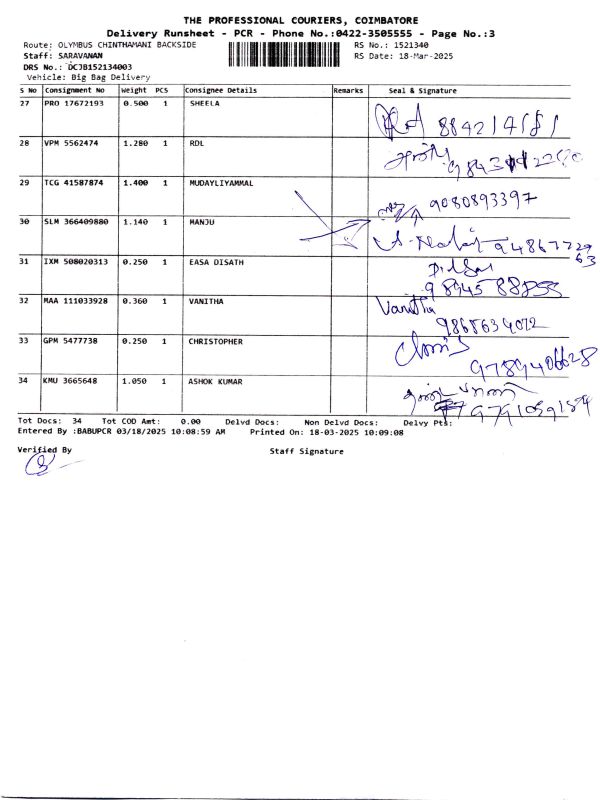 THE PROFESSIONAL COURIERS, COIMBATORE
Delivery Runsheet - PCR - Phone No.:0422-3505555 - Page No.:3
Route: OLYMBUS CHINTHAMANI BACKSIDE RS No.: 1521340
Staff: SARAVANAN RS Date: 18-Mar-2025
DRS No.: DCJB152134003
Vehicle: Big Bag Delivery
S No Consignment No Weight PCS Consignee Details Remarks Seal & Signature
27 PRO 17672193 0.500 1 SHEELA
28 VPM 5562474 1.280 1 RDL
29 TCG 41587874 1.400 1 MUDAYLIYAMMAL 9080893397
30 SLM 366409880 1.140 1 MANJU
31 IXM 508020313 0.250 1 EASA DISATH
32 MAA 111033928 0.360 1 VANITHA Vanitha
9865634072
33 GPM 5477738 0.250 1 CHRISTOPHER
9789406628
34 KMU 3665648 1.050 1 ASHOK KUMAR
Tot Docs: 34 Tot COD Amt: 0.00 Delvd Docs: Non Delvd Docs: Delvy Pts:
Entered By :BABUPCR 03/18/2025 10:08:59 AM Printed On: 18-03-2025 10:09:08
Verified By Staff Signature